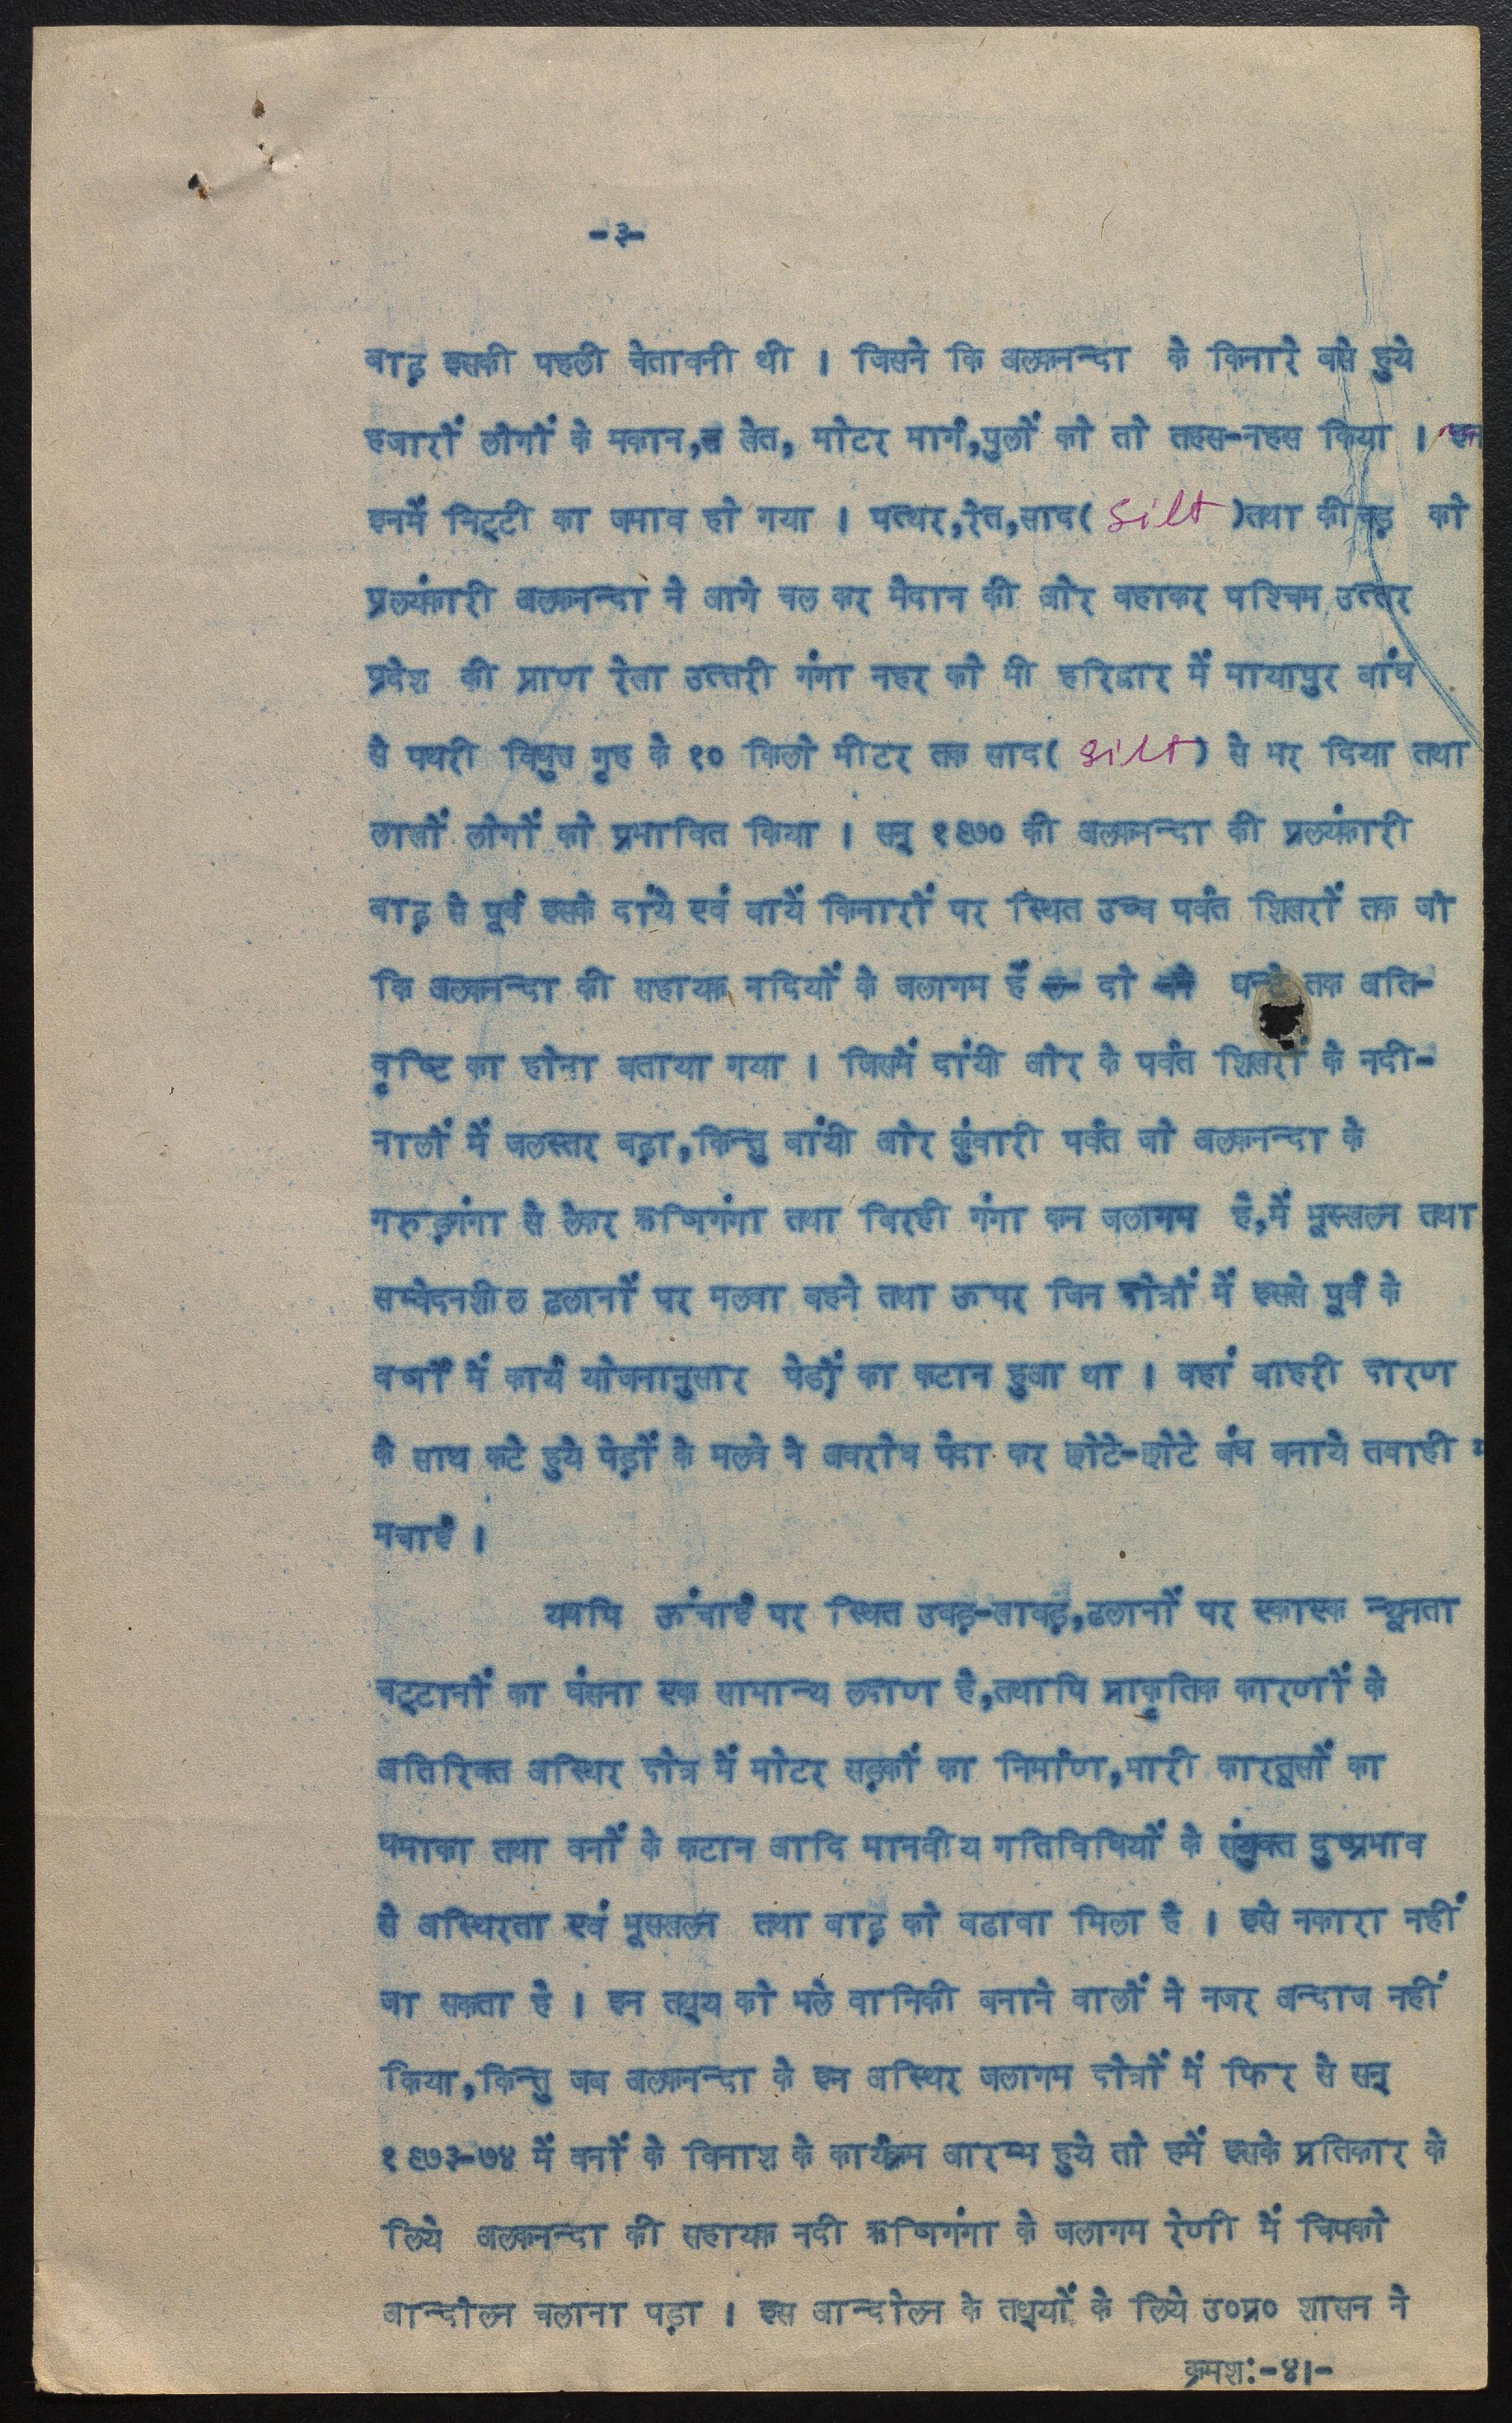 -३-
बाढ़ इसकी पहली चेतावनी थी । जिसने कि अलकनन्दा के किनारे बसे हुये
हजारों लोगों के मकान, खेत, मोटर मार्ग,पुलों को तो तहस-नहस किया ।
इनमें मिट्टी का जमाव हो गया । पत्थर,रेत,साद( silt )तथा कीचड़ को
प्रलयंकारी अलकनन्दा ने आगे चल कर मैदान की ओर बहाकर पश्चिम उत्तर
प्रदेश की प्राण रेखा उत्तरी गंगा नहर को भी हरिद्वार में मायापुर बांध
से पथरी विद्युत गृह के १० किलो मीटर तक साद( silt ) से भर दिया तथा
लाखों लोगों को प्रभावित किया । सन् १९७० की अलकनन्दा की प्रलयंकारी
बाढ़ से पूर्व इसके दांये एवं बायें किनारों पर स्थित उच्च पर्वत शिखरों तक जो
कि अलकनन्दा की सहायक नदियों के जलागम हैं दो घन्टे तक अति-
वृष्टि का होना बताया गया । जिसमें दांयी ओर के पर्वत शिखरों के नदी-
नालों में जलस्तर बढ़ा,किन्तु बांयी ओर कुंवारी पर्वत जो अलकनन्दा के
गरुड़गंगा से लेकर ऋषिगंगा तथा बिरही गंगा का जलागम है,में भूस्खलन तथा
सम्वेदनशील ढलानों पर मलवा बहने तथा ऊपर जिन क्षेत्रों में इससे पूर्व के
वर्षों में कार्य योजनानुसार पेडों का कटान हुआ था । वहां बाहरी क्षरण
के साथ कटे हुये पेड़ों के मलवे ने अवरोध पैदा कर छोटे-छोटे बंध बनाये तबाही
मचाई ।
यद्यपि ऊंचाई पर स्थित उबड़-खाबड़,ढलानों पर एकाएक न्यूनता
चट्टानों का धंसना एक सामान्य लक्षण है,तथापि प्राकृतिक कारणों के
अतिरिक्त अस्थिर क्षेत्र में मोटर सड़कों का निर्माण,भारी कारतूसों का
धमाका तथा वनों के कटान आदि मानवीय गतिविधियों के संयुक्त दुष्प्रभाव
से अस्थिरता एवं भूसखलन तथा बाढ़ को बढावा मिला है । इसे नकारा नहीं
जा सकता है । इन तथ्य को भले वानिकी बनाने वालों ने नजर अन्दाज नहीं
किया,किन्तु जब अलकनन्दा के इन अस्थिर जलागम क्षेत्रों में फिर से सन्
१९७३-७४ में वनों के विनाश के कार्यक्रम आरम्भ हुये तो हमें इसके प्रतिकार के
लिये अलकनन्दा की सहायक नदी ऋषिगंगा के जलागम रेणी में चिपको
आन्दोलन चलाना पड़ा । इस आन्दोलन के तथ्यों के लिये उ०प्र० शासन ने
क्रमश:-४।-